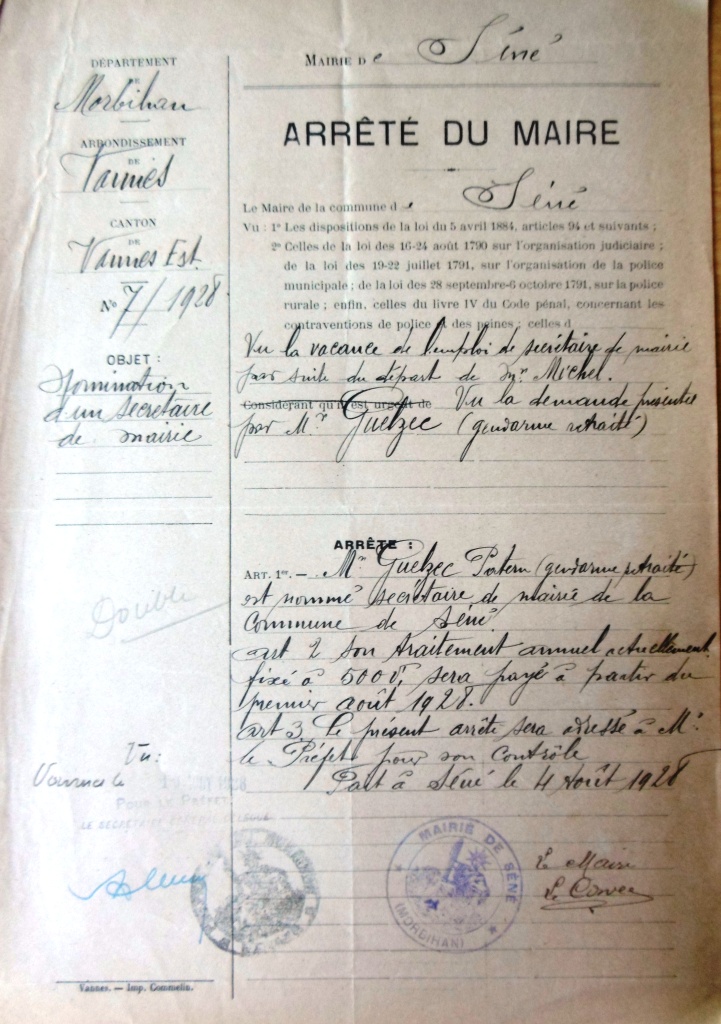 DÉPARTEMENT
DE
Morbihan
ARRONDISSEMENT
DE
Vannes
CANTON
DE
Vannes Est.
N° 7/1928
OBJET :
Nomination
d'un secrétaire
de mairie
Double
Vu:
Vannes le
POUR LE PRÉFET
LE SECRÉTAIRE GÉNÉRAL DÉLÉGUÉ
Vannes. — Imp. Commelin.
MAIRIE De Séné
ARRÊTÉ DU MAIRE
Le Maire de la commune de Séné
Vu : 1° Les dispositions de la loi du 5 avril 1884, articles 94 et suivants ;
2° Celles de la loi des 16-24 août 1790 sur l'organisation judiciaire ;
de la loi des 19-22 juillet 1791, sur l'organisation de la police
municipale ; de la loi des 28 septembre-6 octobre 1791, sur la police
rurale ; enfin, celles du livre IV du Code pénal, concernant les
contraventions de police et des peines ; celles d
Vu la vacance de l'emploi de secrétaire de mairie
par suite du départ de Mr. Michel.
Considérant qu'il est urgent de Vu la demande présentée
par Mr Guelzec (gendarme retraité)
ARRÊTE :
ART. 1er. — Mr Guelzec Patern (gendarme retraité)
est nommé secrétaire de mairie de la
Commune de Séné
art 2 son traitement annuel actuellement
fixé à 5000f, sera payé à partir du
premier août 1928.
art 3 Le présent arrêté sera adressé à Mr
le Préfet pour son contrôle
Fait à Séné le 4 Août 1928
MAIRIE DE SÉNÉ
(MORBIHAN)
Le Maire